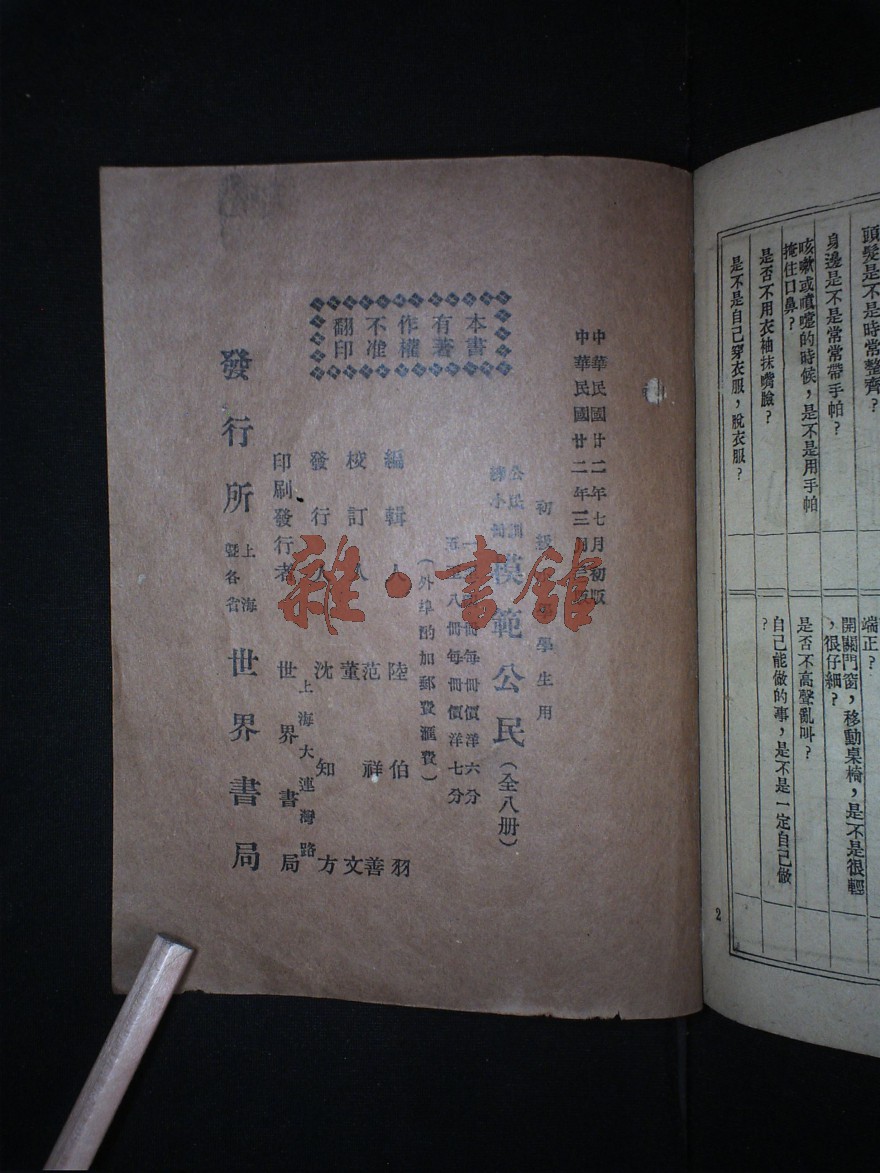 頭髮是不是時常整齊？
身邊是不是常常帶手帕？
咳嗽或噴嚏的時候，是不是用手帕
掩住口鼻？
是否不用衣袖抹嘴臉？
是不是自己穿衣服，脫衣服？
端正？
開關門窗，移動桌椅，是不是很輕
，很仔細？
是否不高聲亂叫？
自己能做的事，是不是一定自己做
？
2
中華民國廿二年七月初版
中華民國廿二年三月版
初級學生用
模範公民（全八册）
册每册價洋六分
五至八册每册價洋七分
（外埠酌加郵費滙費）
編輯人 陸伯羽
校訂人 范祥善
董文
發行人 沈知方
印刷發行者 上海大連灣路
世界書局
發行所 上海
暨各省 世界書局
本書
有著
作權
不准
翻印
雜·書館